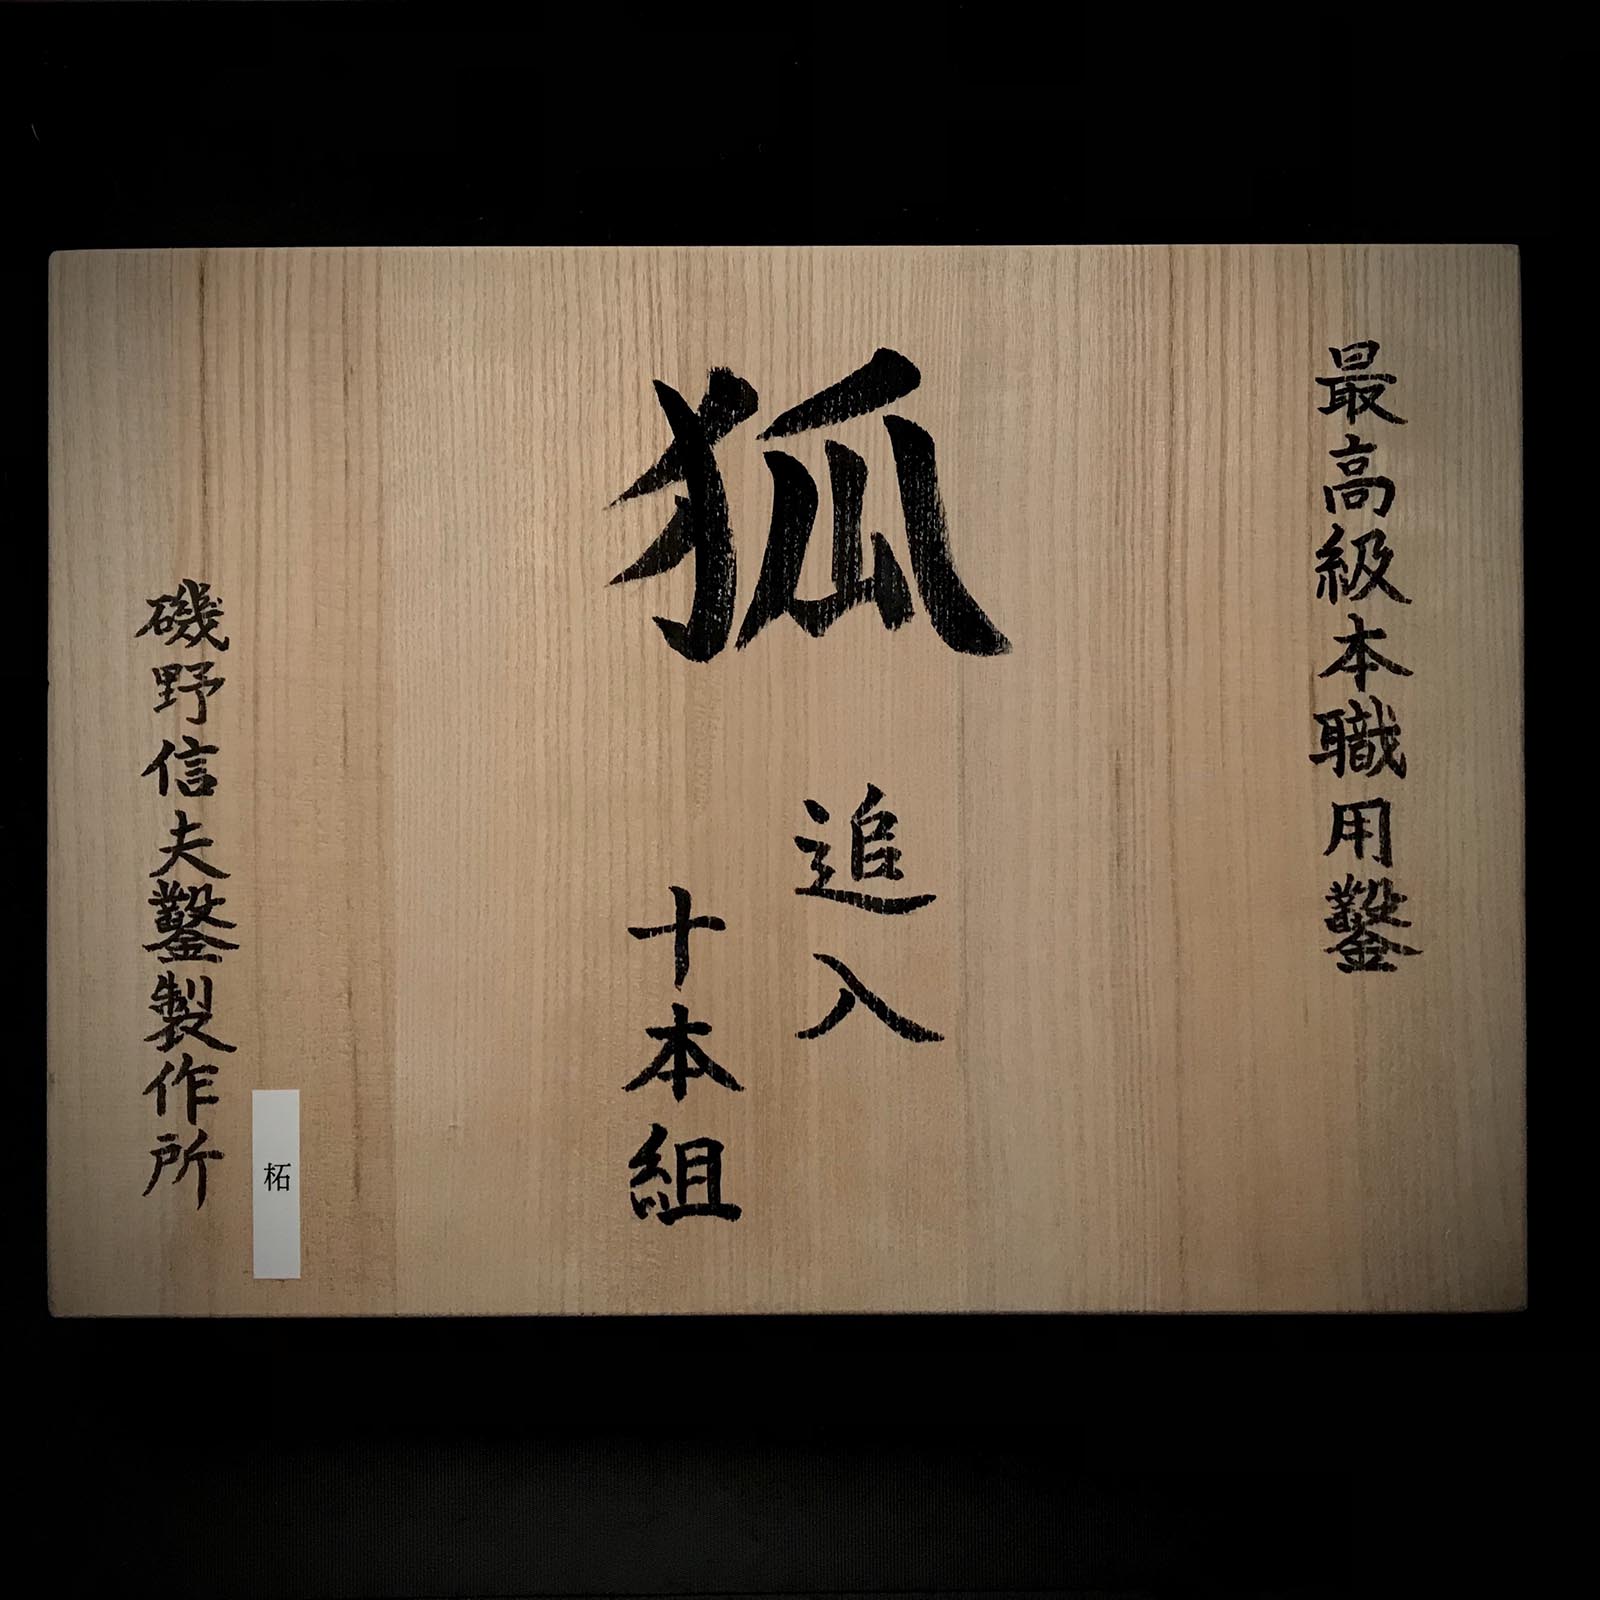 最高級本職用鑿
狐
追入
十本組
磯野信夫鑿製作所
柘